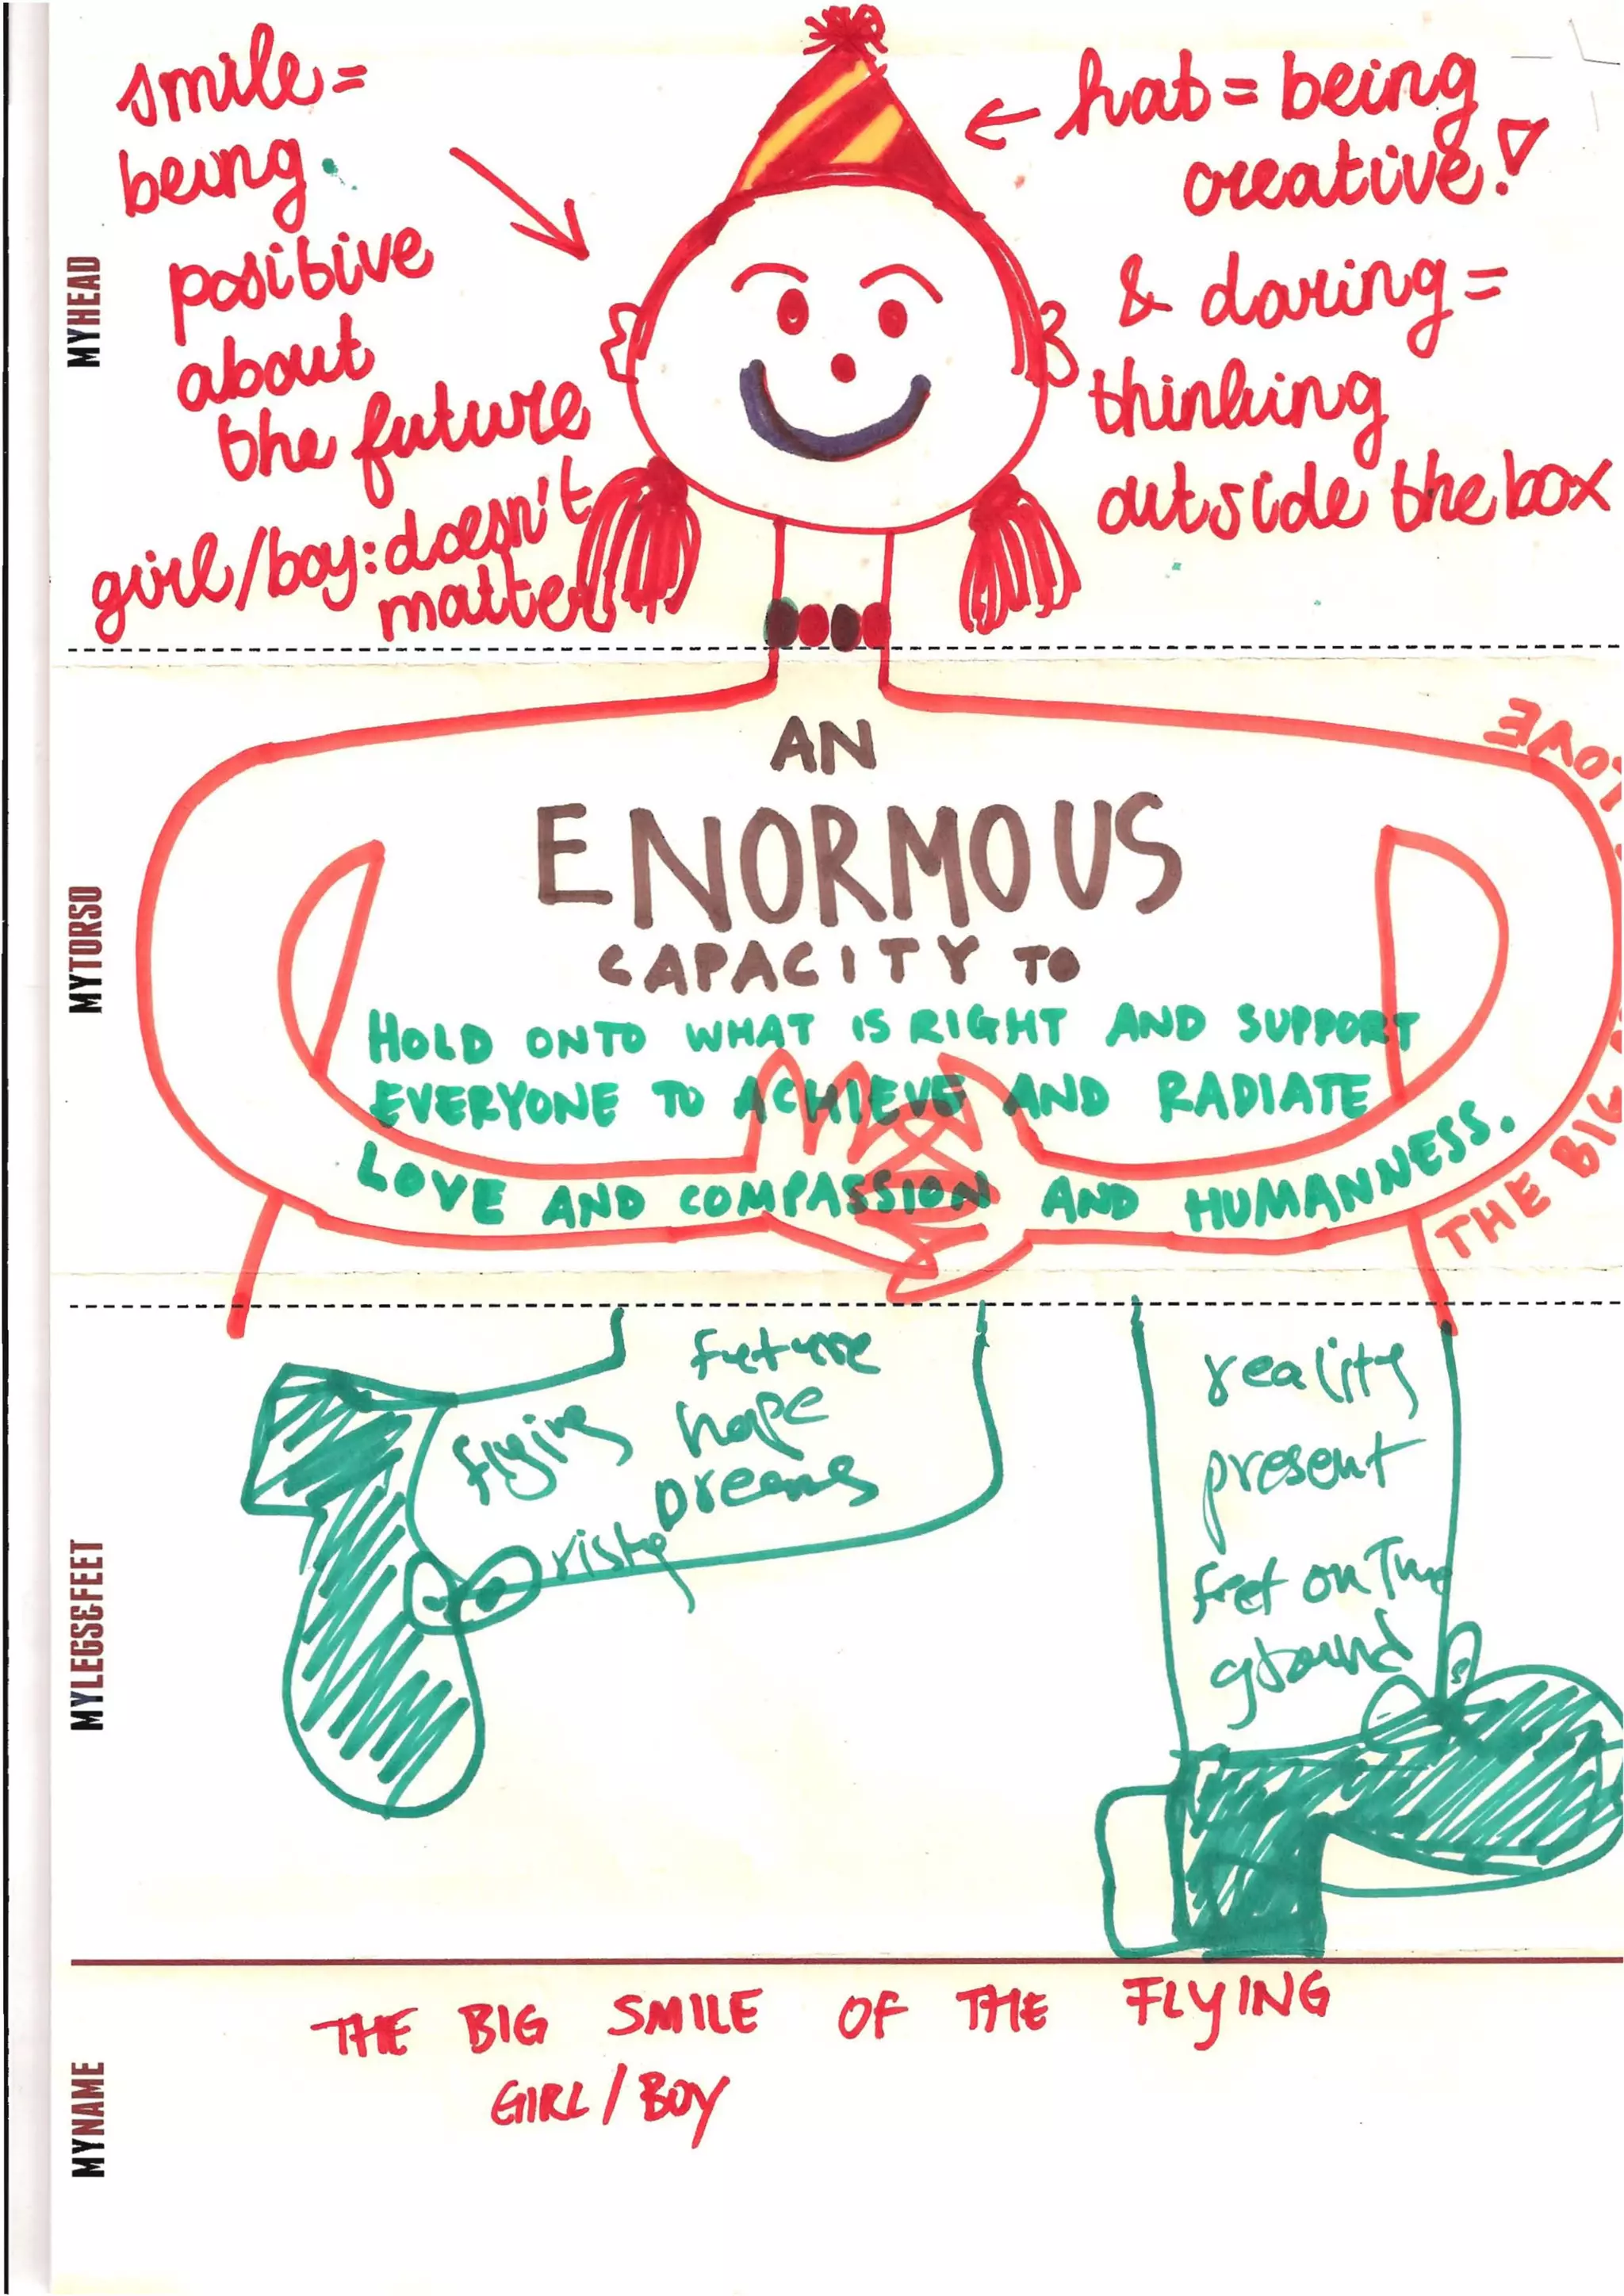 MYHEAD
smile =
being
positive
about
the future
girl/boy: doesn't
matter
hat = being
creative!
& daring =
thinking
outside the box
MYTORSO
AN
ENORMOUS
CAPACITY TO
HOLD ONTO WHAT IS RIGHT AND SUPPORT
EVERYONE TO ACHIEVE AND RADIATE
LOVE AND COMPASSION AND HUMANNESS.
THE BIG
LOVE
MYLEGS&FEET
future
flying hope
Dreams
risky
reality
present
feet on The
ground
MYNAME
THE BIG SMILE OF THE FLYING
GIRL / BOY